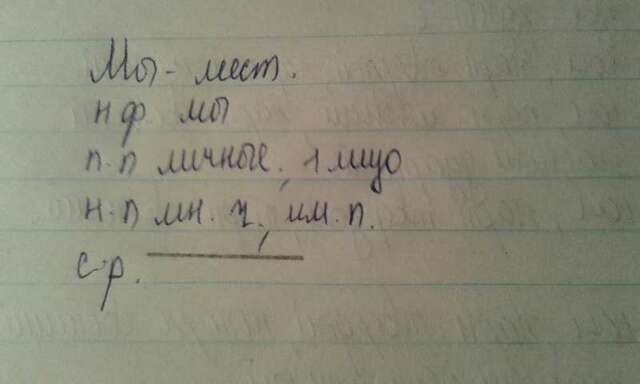 Мы - мест.
н ф мы
п.п личные, 1 лицо
н.п мн. ч., им. п.
с.р.